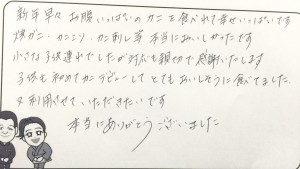 新年早々お腹いっぱいのカニを食べれて幸せいっぱいです
焼ガニ・カニシャブ・カニ刺し等本当においしかったです
小さな子供連れでしたが対応も親切で感謝いたします
子供も初めてカニデビューしてとてもおいしそうに食べてました
又利用させていただきたいです
本当にありがとうございました